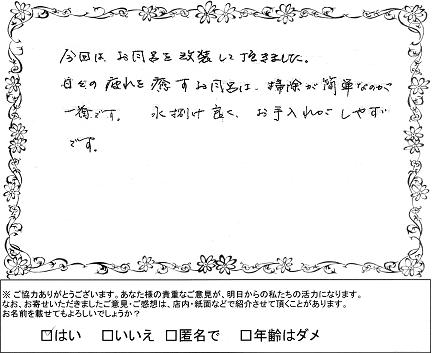 今回は お風呂を改装して頂きました。
日々の疲れを癒すお風呂は、掃除が簡単なのが
一番です。 水捌け良く、お手入れがしやすい
です。
※ ご協力ありがとうございます。あなた様の貴重なご意見が、明日からの私たちの活力になります。
なお、お寄せいただきましたご意見・ご感想は、店内・紙面などで紹介させて頂くことがあります。
お名前を載せてもよろしいでしょうか?
☑はい □いいえ □匿名で □年齢はダメ